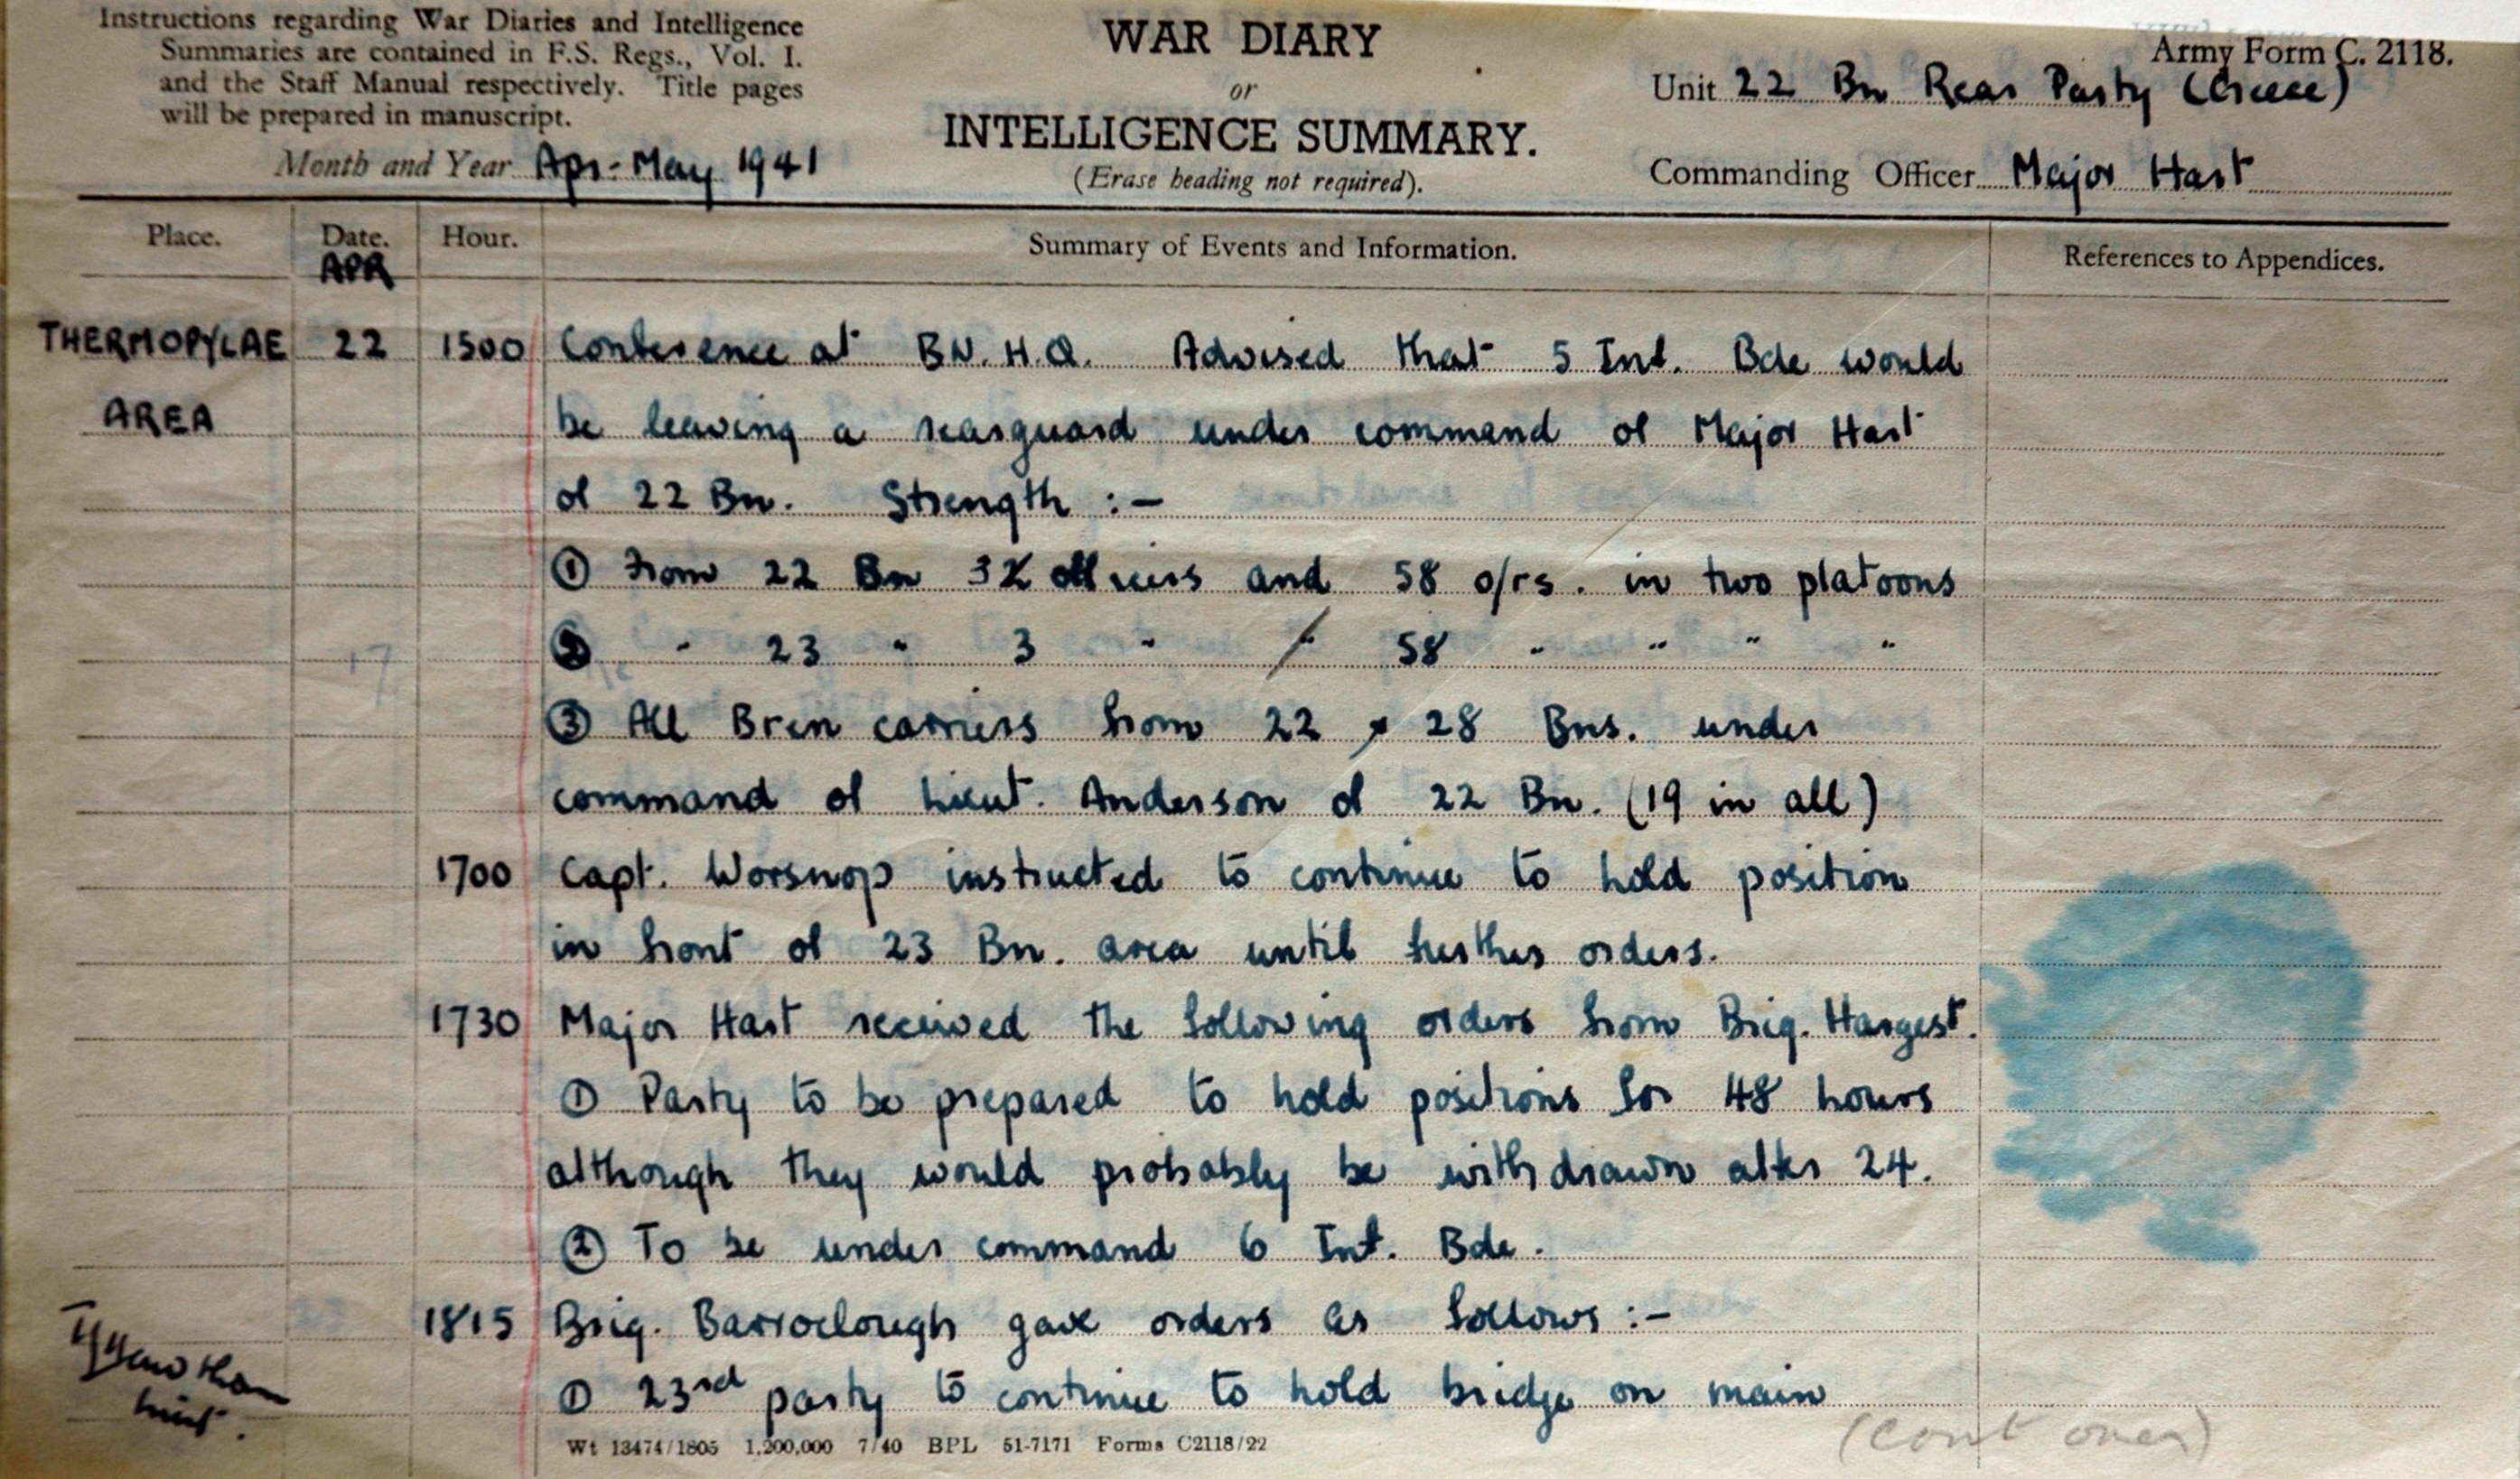 Instructions regarding War Diaries and Intelligence
Summaries are contained in F.S. Regs., Vol. I.
and the Staff Manual respectively. Title pages
will be prepared in manuscript.
Month and Year Apr-May 1941
WAR DIARY
or
INTELLIGENCE SUMMARY.
(Erase heading not required).
Army Form C. 2118.
Unit 22 Bn Rear Party (Greece)
Commanding Officer Major Hart
Place. Date. Hour. Summary of Events and Information. References to Appendices.
APR
THERMOPYLAE 22 1500 Conference at BN. H.Q. Advised that 5 Inf. Bde would
AREA be leaving a rearguard under command of Major Hart
of 22 Bn. Strength :-
① From 22 Bn 3 officers and 58 o/rs. in two platoons
② " 23 " 3 " " 58 " " " "
③ All Bren carriers from 22 & 28 Bns. under
command of Lieut. Anderson of 22 Bn. (19 in all)
1700 Capt. Worsnop instructed to continue to hold position
in front of 23 Bn. area until further orders.
1730 Major Hart received the following orders from Brig. Hargest.
① Party to be prepared to hold positions for 48 hours
although they would probably be withdrawn after 24.
② To be under command 6 Inf. Bde.
1815 Brig. Barroclough gave orders as follows :-
① 23rd party to continue to hold bridge on main
(cont over)
Wt 13474/1805 1,200,000 7/40 BPL 51-7171 Forms C2118/22